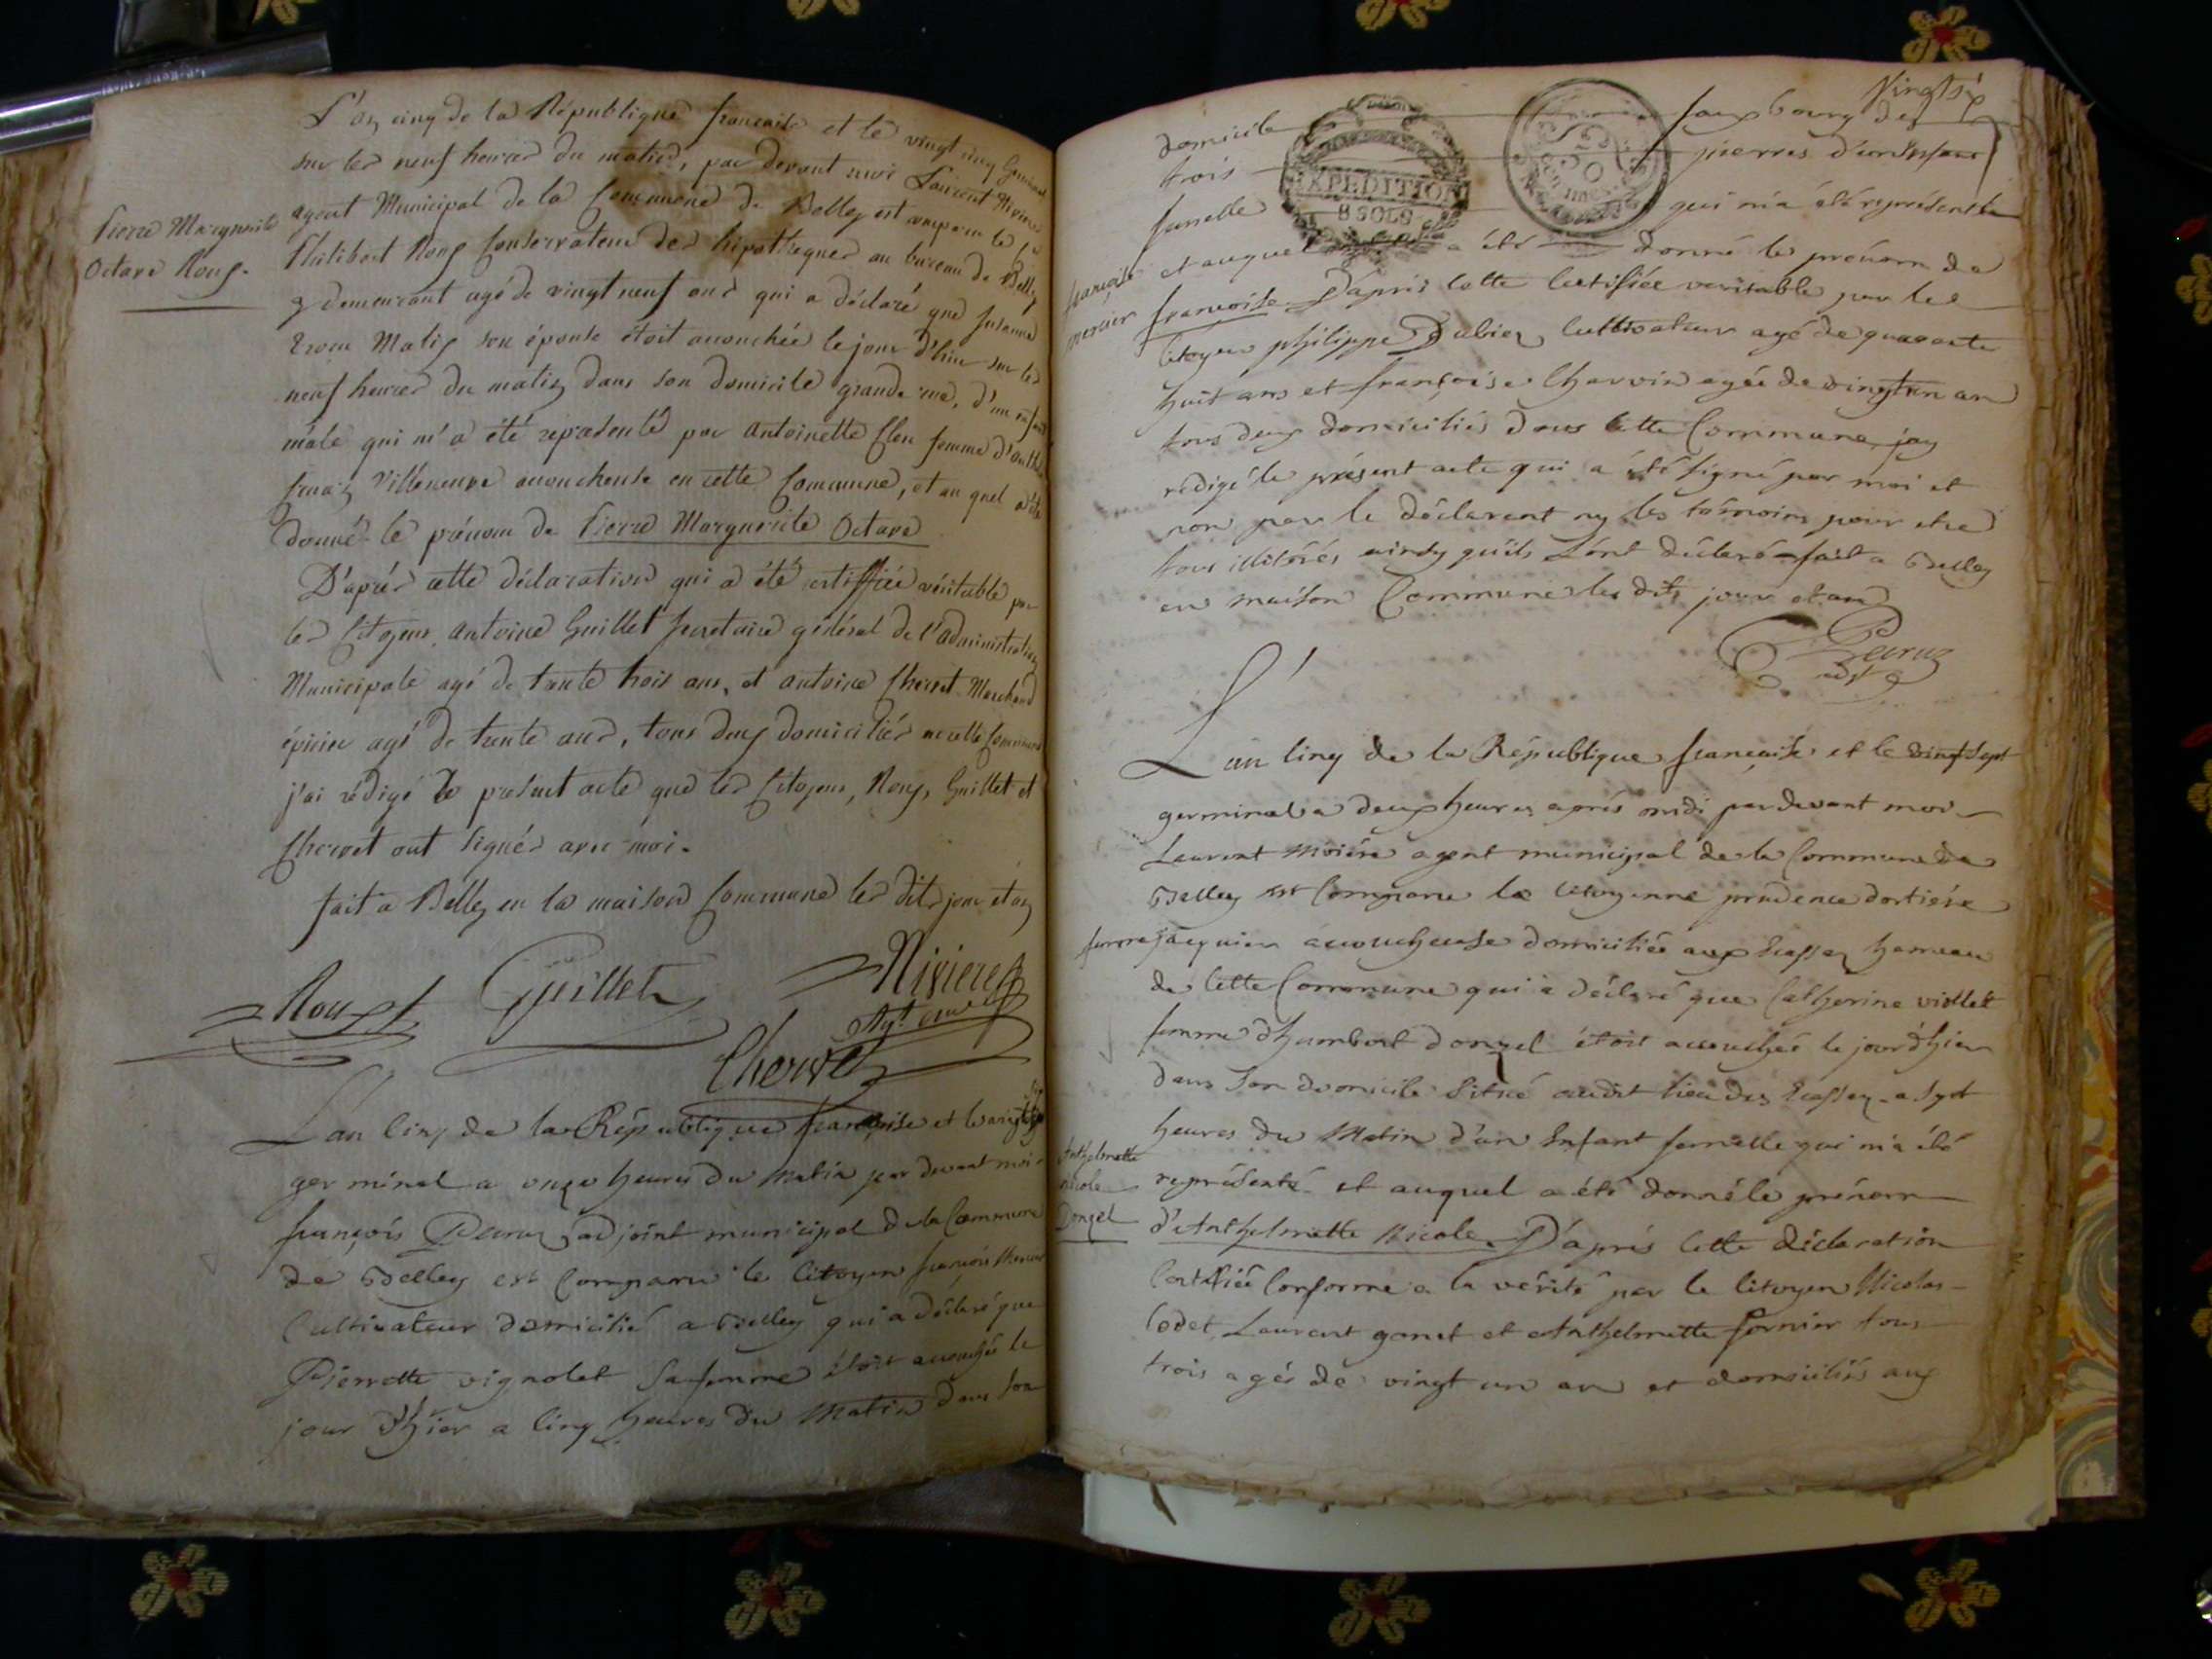 L'an cinq de la République française et le vingt cinq Germinal
sur les neuf heures du matin, par devant moi Laurent Rivière
agent Municipal de la Commune de Belley est comparu le
Pierre Marguerite
Octave Roux.
Philibert Roux Conservateur des hipothèques au bureau de Belley
y demeurant agé de vingt neuf ans qui a déclaré que Susanne
Matix son épouse étoit accouchée le jour d'hier sur les
neuf heures du matin dans son domicile grande rue, d'un enfant
mâle qui m'a été représenté par Antoinette femme
Villeneuve accoucheuse en cette Commune, et au quel a été
donné le prénom de Pierre Marguerite Octave
D'après cette déclaration qui a été certiffiée véritable par
les Citoyens Antoine Guillet secretaire général de l'administration
Municipale agé de trente trois ans, et Antoine Chervet Marchand
épicier agé de trente ans, tous deux domiciliés en cette Commune
j'ai rédigé le présent acte que les Citoyens, Roux, Guillet et
Chervet ont signés avec moi.
fait a Belley en la maison Commune les dits jour et an
Roux Guillet Rivière
Agt
Chervet
L'an cinq de la République française et le vingt six
germinal a onze heures du matin par devant moi
françois Peruz adjoint municipal de la Commune
de Belley est comparu le Citoyen françois Mercier
Cultivateur domicilié a Belley qui a déclaré que
Pierrette vignolet sa femme étoit accouchée le
jour d'hier a cinq heures du Matin dans son
Vingt six
domicile faux bourg des
trois pierres d'un Enfant
EXPEDITION
8 SOLS
femelle qui m'a été représenté
et auquel a été donné le prénom de
françoise
mercier
françoise D'après cette Certifiée veritable par les
Citoyen philippe Dubiez Cultivateur agé de quarante
huit ans et françoise Charvin agée de vingt un an
tous deux domiciliés dans cette Commune jay
rédigé le présent acte qui a été signé par moi et
non par le déclarant ny les témoins pour etre
tous illitérés ainsy quils L'ont déclaré fait a Belley
en maison Commune les dits jour et an
Peruz
adjt
L'an cinq de la République française et le vingt sept
germinal a deux heures après midi par devant moi
Laurent Rivière agent municipal de la Commune de
Belley est Comparue la Citoyenne prudence dortière
femme jacquier accoucheuse domiciliée aux Ecassez hameau
de cette Commune qui a déclaré que Catherine viollet
femme d'humbert donzel étoit accouchée le jour d'hier
dans son domicile situé audit lieu des Ecassez a sept
heures du Matin d'un Enfant femelle qui m'a été
Anthelmette
nicole
Donzel
représenté et auquel a été donné le prénom
d'Anthelmette Nicole. D'après cette déclaration
Certifiée Conforme a la vérité par le Citoyen Nicolas
Codet, Laurent ganet et Anthelmette fornier tous
trois agés de vingt un an et domiciliés aux